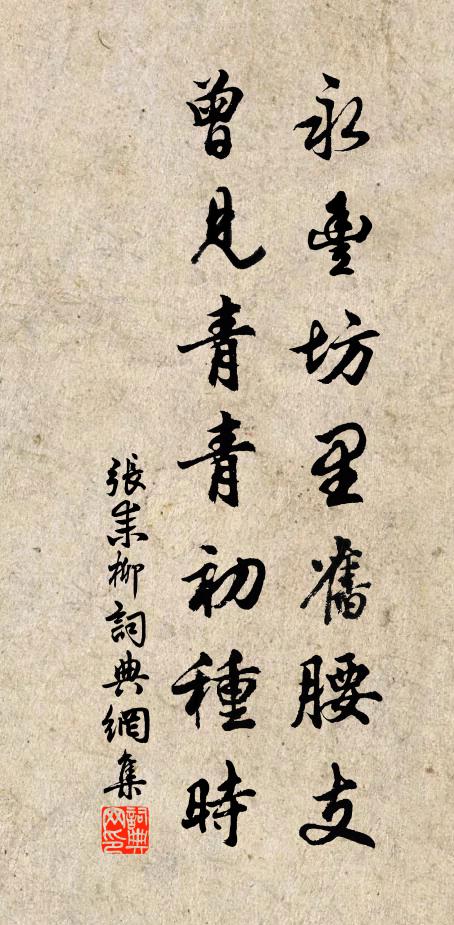 永豐坊里舊腰支
曾見青青初種時
張耒柳詞典網集
詞典網印